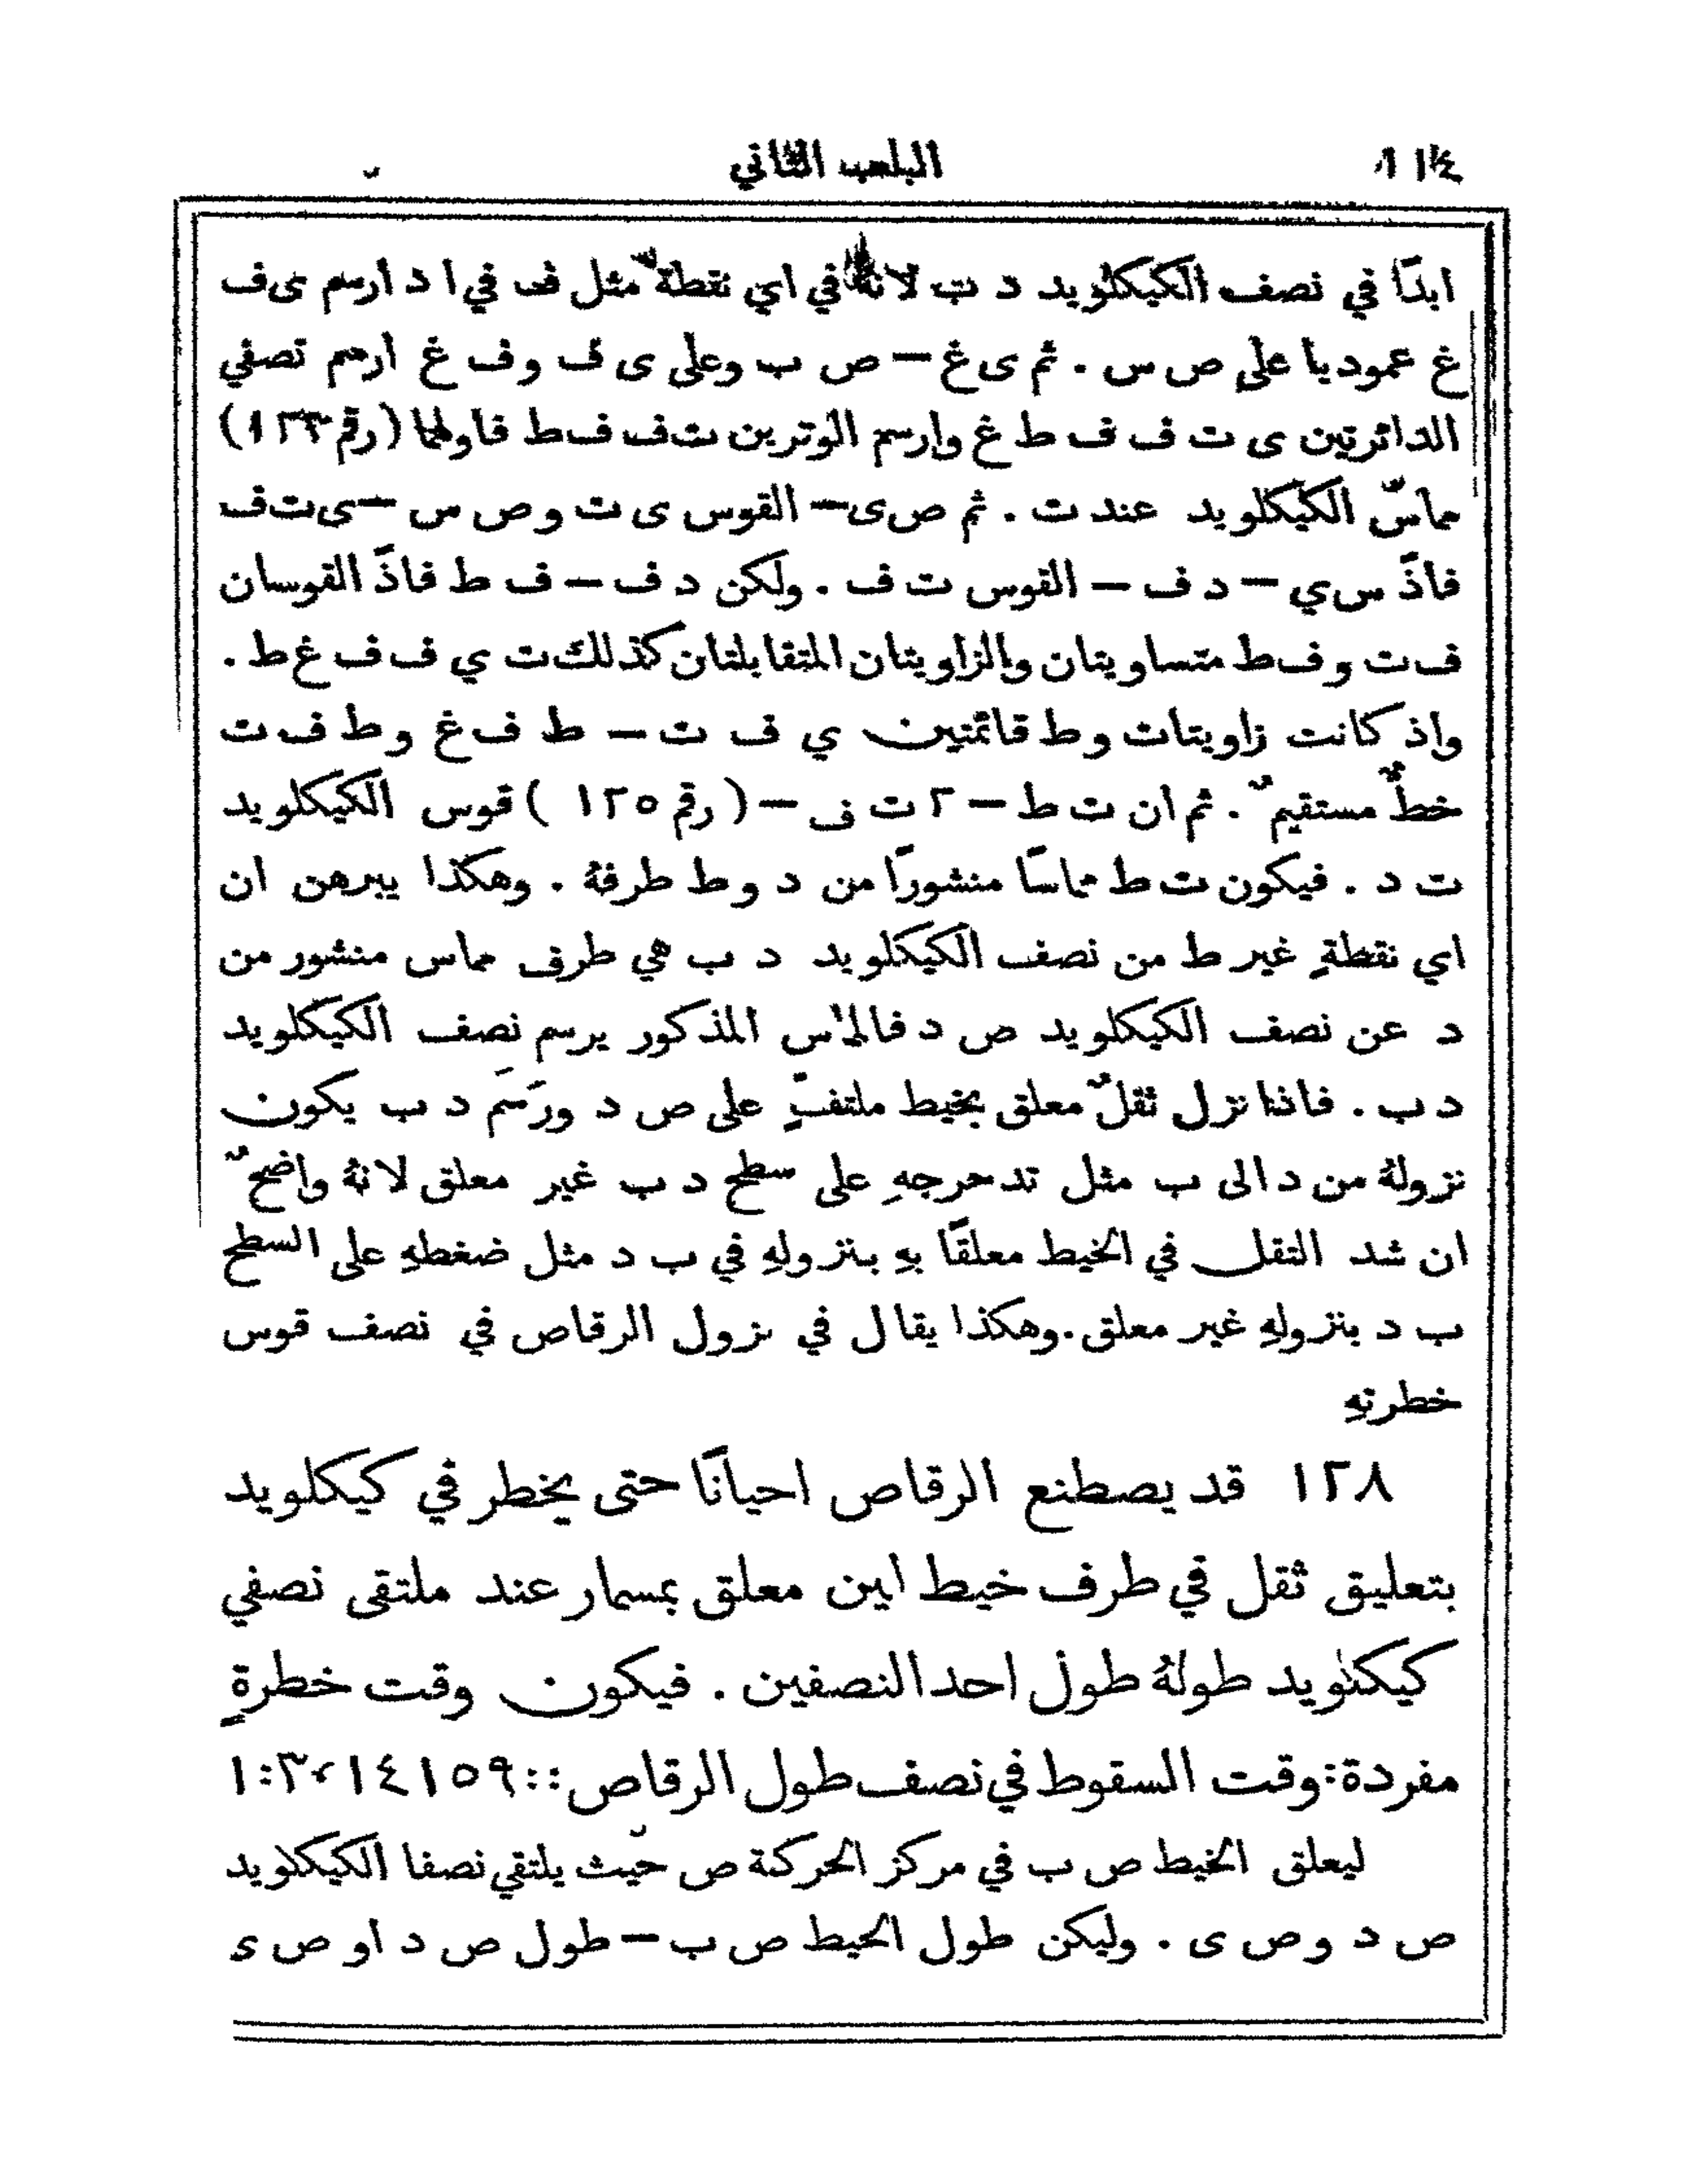 ١١٤ الباب الثاني
ابدًا في نصف الكيكلويد د ب لانهُ في اي نقطة مثل ف في ا د ارسم ى ف
غ عموديا على ص س . ثم ى غ — ص ب وعلى ى ف و ف غ ارسم نصفي
الدائرتين ى ت ف ف ط غ وارسم الوترين ت ف ف ط فاولهما (رقم ١٢٣)
مماسّ الكيكلويد عند ت . ثم ص ى — القوس ى ت و ص س — ى ت ف
فاذًا س ي — د ف — القوس ت ف . ولكن د ف — ف ط فاذًا القوسان
ف ت و ف ط متساويتان والزاويتان المتقابلتان كذلك ت ي ف ف غ ط .
واذ كانت زاويتا ت و ط قائمتين ي ف ت — ط ف غ و ط ف ت
خطٌّ مستقيمٌ . ثم ان ت ط — ٢ ت ف — ( رقم ١٢٥ ) قوس الكيكلويد
ت د . فيكون ت ط مماسًا منشورًا من د و ط طرفهُ . وهكذا يبرهن ان
اي نقطةٍ غير ط من نصف الكيكلويد د ب هي طرف مماس منشور من
د عن نصف الكيكلويد ص د فالمماس المذكور يرسم نصف الكيكلويد
د ب . فاذا نزل ثقلٌ معلق بخيط ملتفٍّ على ص د ورَسَم د ب يكون
نزولهُ من د الى ب مثل تدحرجهِ على سطح د ب غير معلق لانهُ واضحٌ
ان شد الثقل في الخيط معلقًا بهِ بنزولهِ في ب د مثل ضغطهِ على السطح
ب د بنزولهِ غير معلق . وهكذا يقال في نزول الرقاص في نصف قوس
خطرتهِ
١٢٨ قد يصطنع الرقاص احيانًا حتى يخطر في كيكلويد
بتعليق ثقل في طرف خيط لين معلق بمسمار عند ملتقى نصفي
كيكلويد طولهُ طول احد النصفين . فيكون وقت خطرةٍ
مفردة:وقت السقوط في نصف طول الرقاص::٣٬١٤١٥٩:١
ليعلق الخيط ص ب في مركز الحركة ص حيث يلتقي نصفا الكيكلويد
ص د و ص ى . وليكن طول الخيط ص ب — طول ص د او ص ى